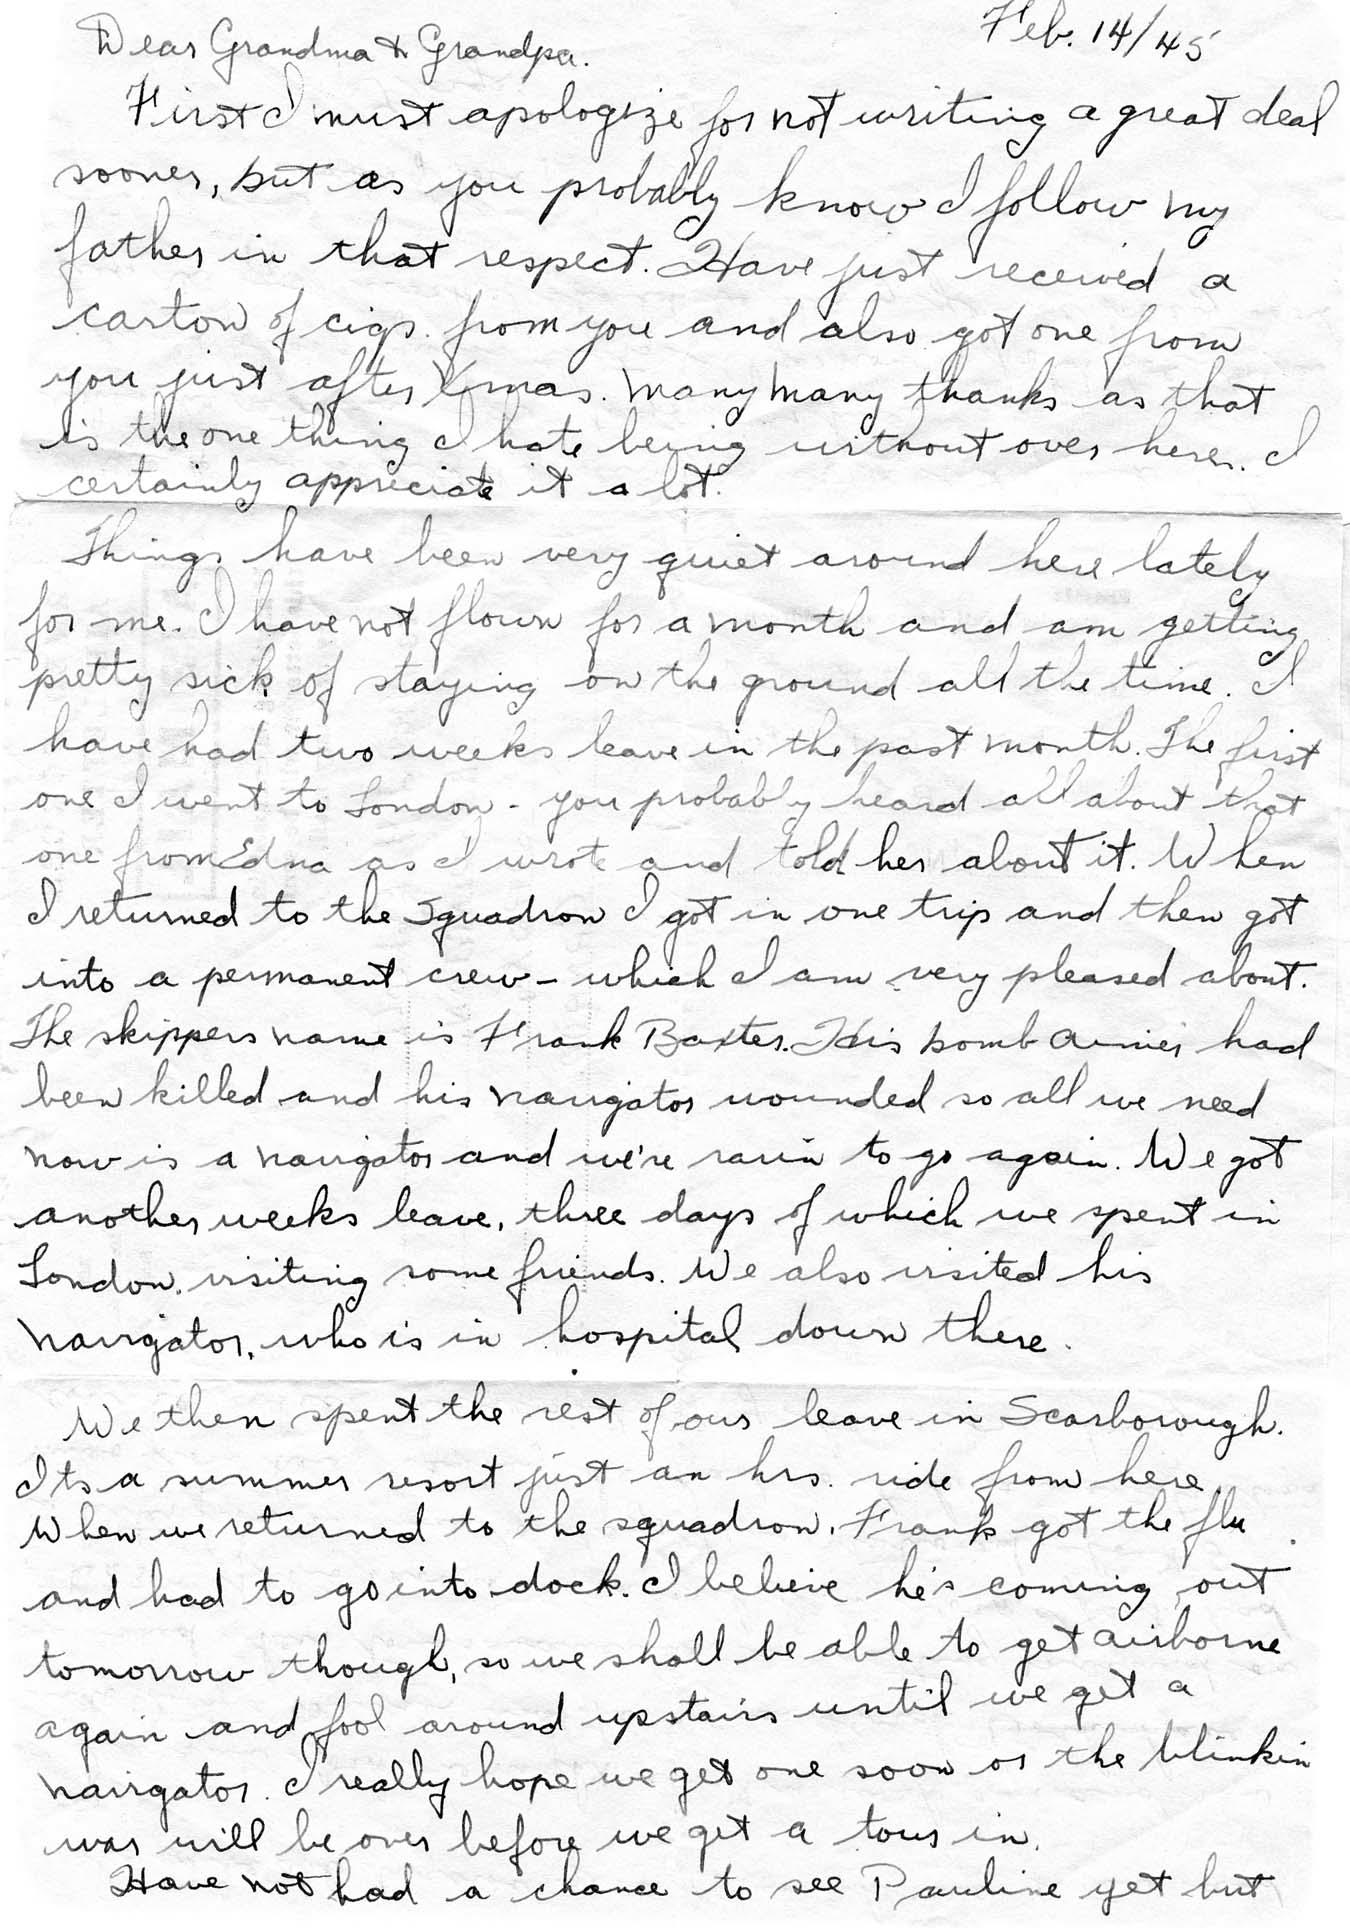 Feb. 14/45
Dear Grandma & Grandpa.
First I must apologize for not writing a great deal
sooner, but as you probably know I follow my
father in that respect. Have just received a
carton of cigs. from you and also got one from
you just after Xmas. Many many thanks as that
is the one thing I hate being without over here. I
certainly appreciate it a lot.
Things have been very quiet around here lately
for me. I have not flown for a month and am getting
pretty sick of staying on the ground all the time. I
have had two weeks leave in the past month. The first
one I went to London - you probably heard all about that
one from Edna as I wrote and told her about it. When
I returned to the Squadron I got in one trip and then got
into a permanent crew - which I am very pleased about.
The skippers name is Frank Baxter. His bomb aimer had
been killed and his navigator wounded so all we need
now is a navigator and we're rarin to go again. We got
another weeks leave, three days of which we spent in
London, visiting some friends. We also visited his
navigator, who is in hospital down there.
We then spent the rest of our leave in Scarborough.
Its a summer resort just an hrs. ride from here
When we returned to the squadron, Frank got the flu
and had to go into dock. I believe he's coming out
tomorrow though, so we shall be able to get airborne
again and fool around upstairs until we get a
navigator. I really hope we get one soon or the blinkin
war will be over before we get a tour in.
Have not had a chance to see Pauline yet but